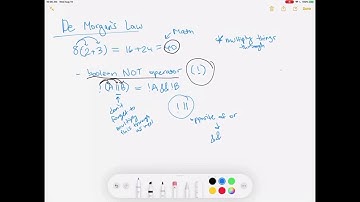 De Morgan's Law
Math
8(2+3) = 16+24 = 40
* multiply things through
- boolean NOT operator (!)
!(A||B) = !A && !B
don't
forget to
multiply
this through
as well
! ||
opposite of or
&&